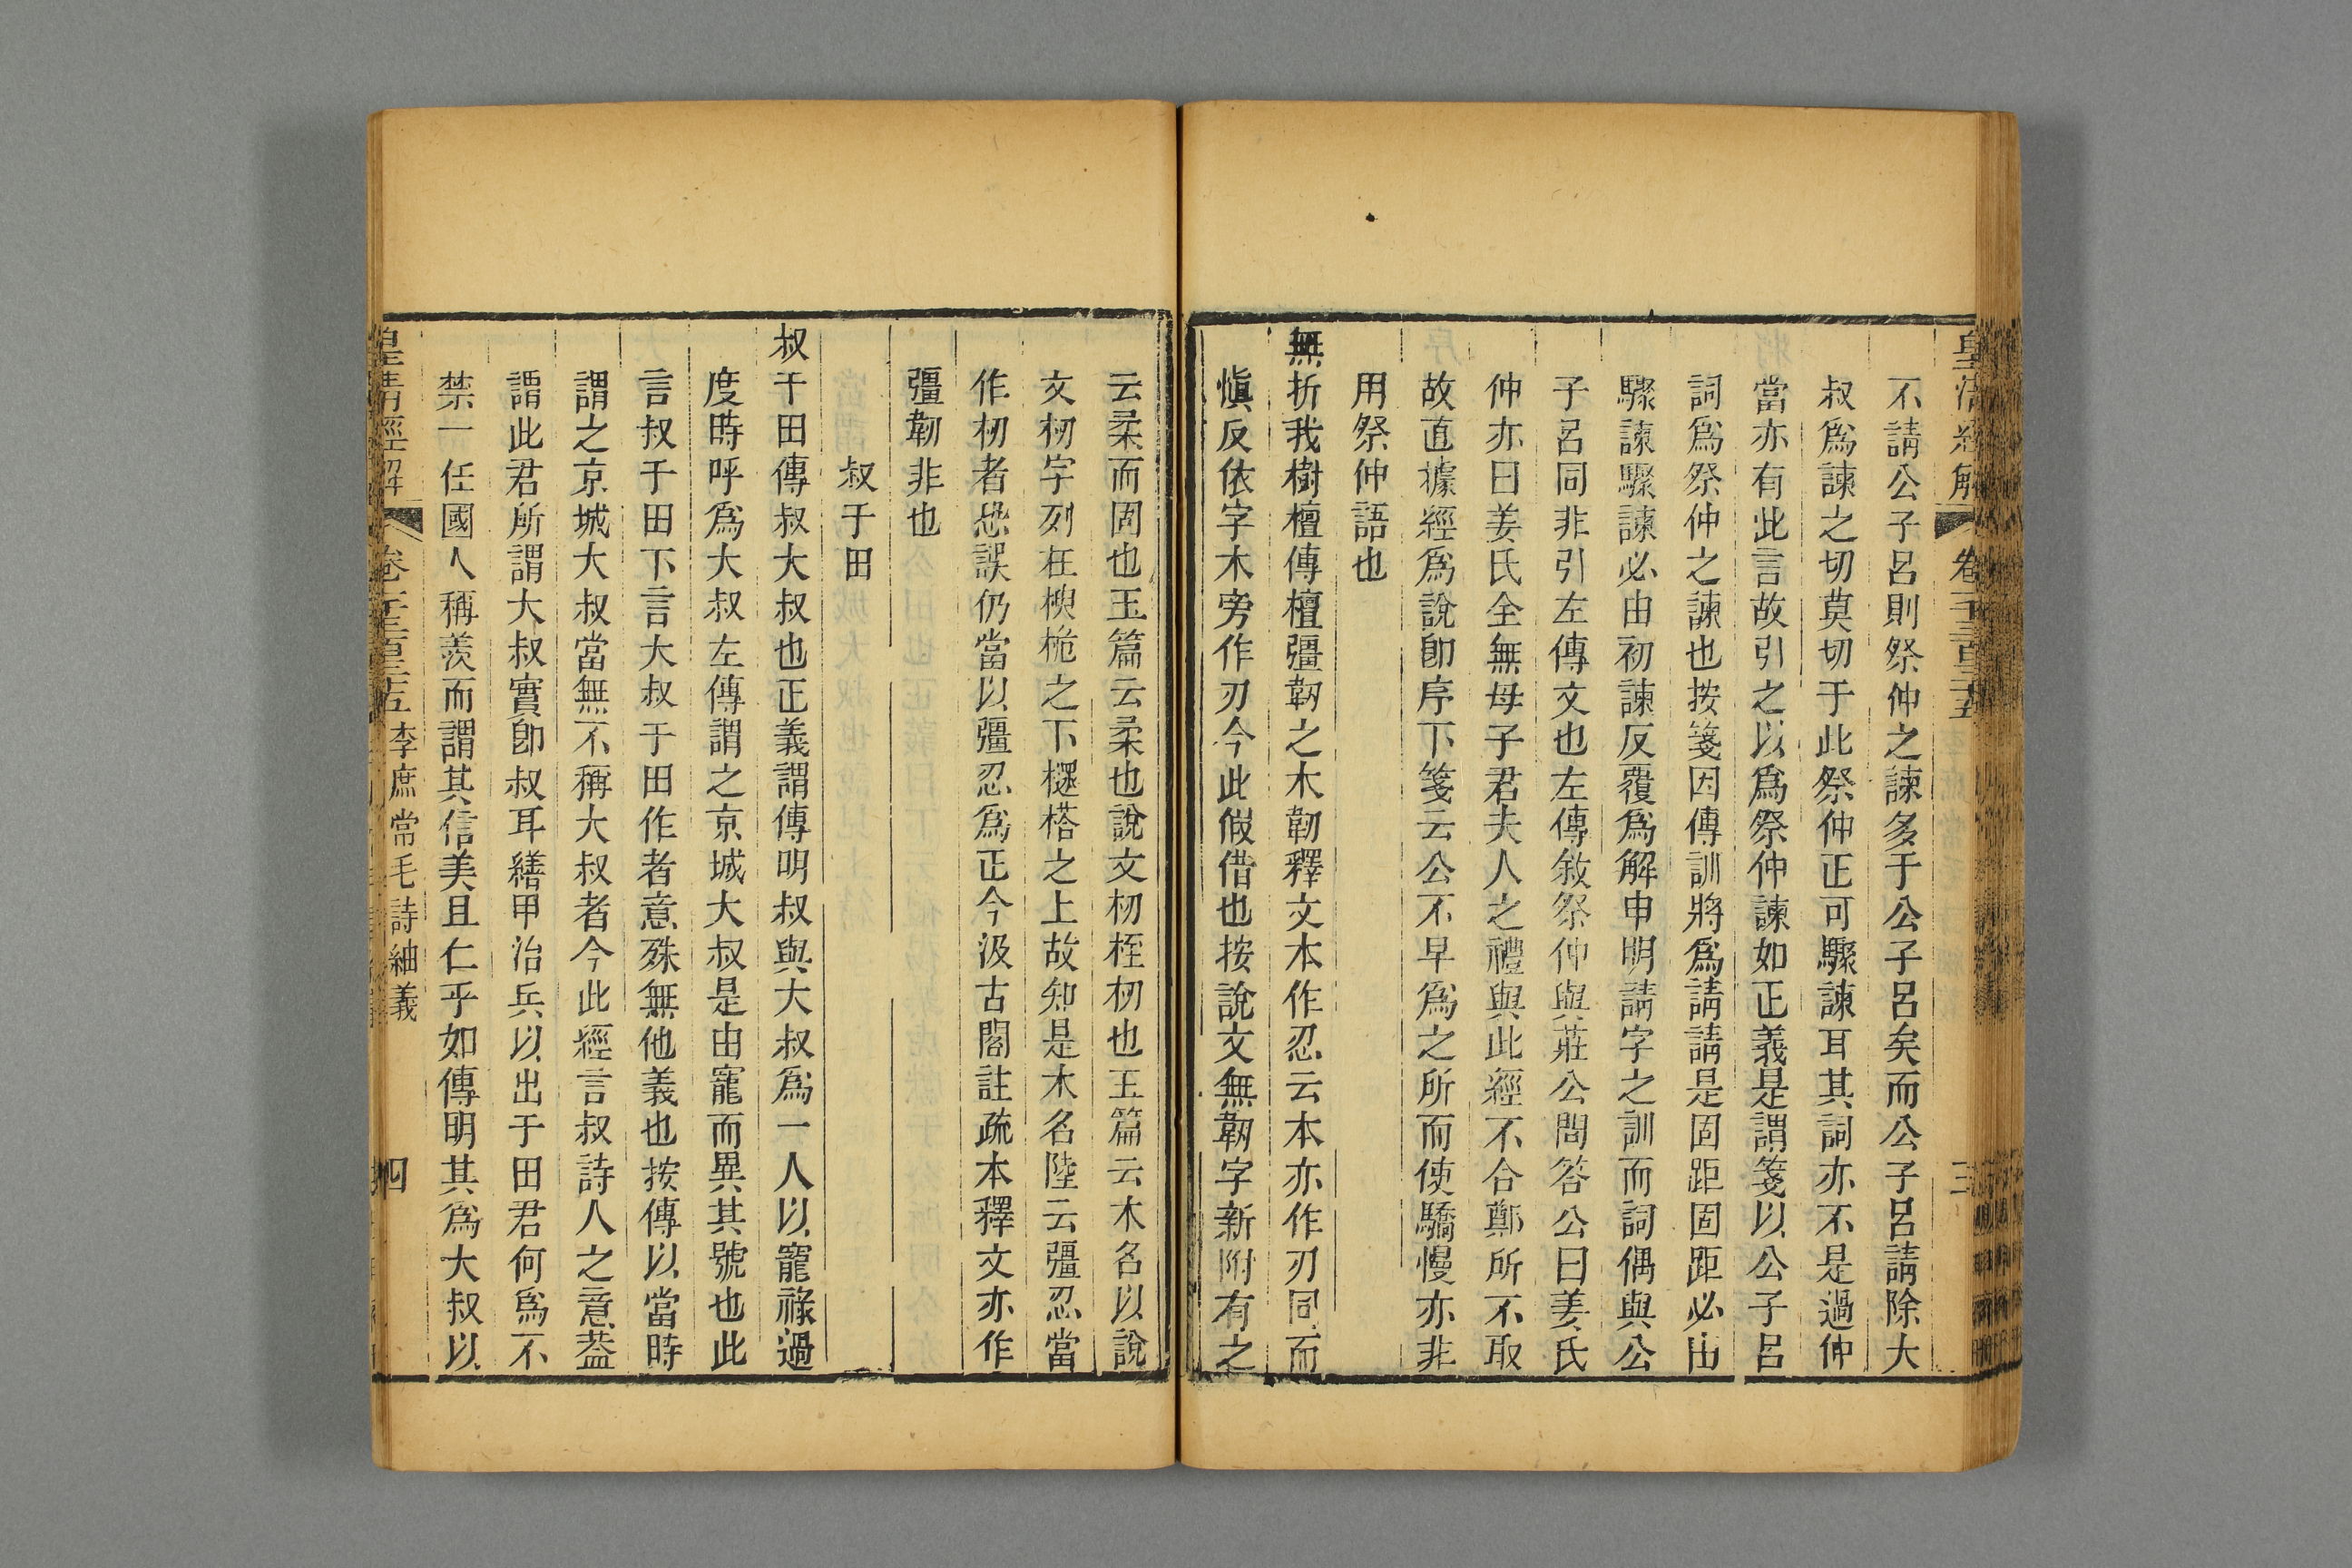 皇清經解
卷一千三百三十五
三
不請公子呂則祭仲之諫多于公子呂矣而公子呂請除大
叔爲諫之切莫切于此祭仲正可驟諫耳其詞亦不是過仲
當亦有此言故引之以爲祭仲諫如正義是謂箋以公子呂
詞爲祭仲之諫也按箋因傳訓將爲請請是固距固距必由
驟諫驟諫必由初諫反覆爲解申明請字之訓而詞偶與公
子呂同非引左傳文也左傳敘祭仲與莊公問答公曰姜氏
仲亦曰姜氏全無母子君夫人之禮與此經不合鄭所不取
故直據經爲說卽序下箋云公不早爲之所而使驕慢亦非
用祭仲語也
無折我樹檀傳檀彊韌之木韌釋文本作忍云本亦作刃同而
愼反依字木旁作刃今此假借也按說文無韌字新附有之
云柔而固也玉篇云柔也說文杒桎杒也玉篇云木名以說
文杒字列在楰桅之下樬榙之上故知是木名陸云彊忍當
作杒者恐誤仍當以彊忍爲正今汲古閣註疏本釋文亦作
彊韌非也
叔于田
叔于田傳叔大叔也正義謂傳明叔與大叔爲一人以寵祿過
度時呼爲大叔左傳謂之京城大叔是由寵而異其號也此
言叔于田下言大叔于田作者意殊無他義也按傳以當時
謂之京城大叔當無不稱大叔者今此經言叔詩人之意葢
謂此君所謂大叔實卽叔耳繕甲治兵以出于田君何爲不
禁一任國人稱羨而謂其信美且仁乎如傳明其爲大叔以
皇清經解
卷一千三百三十五
李庶常毛詩紬義
四